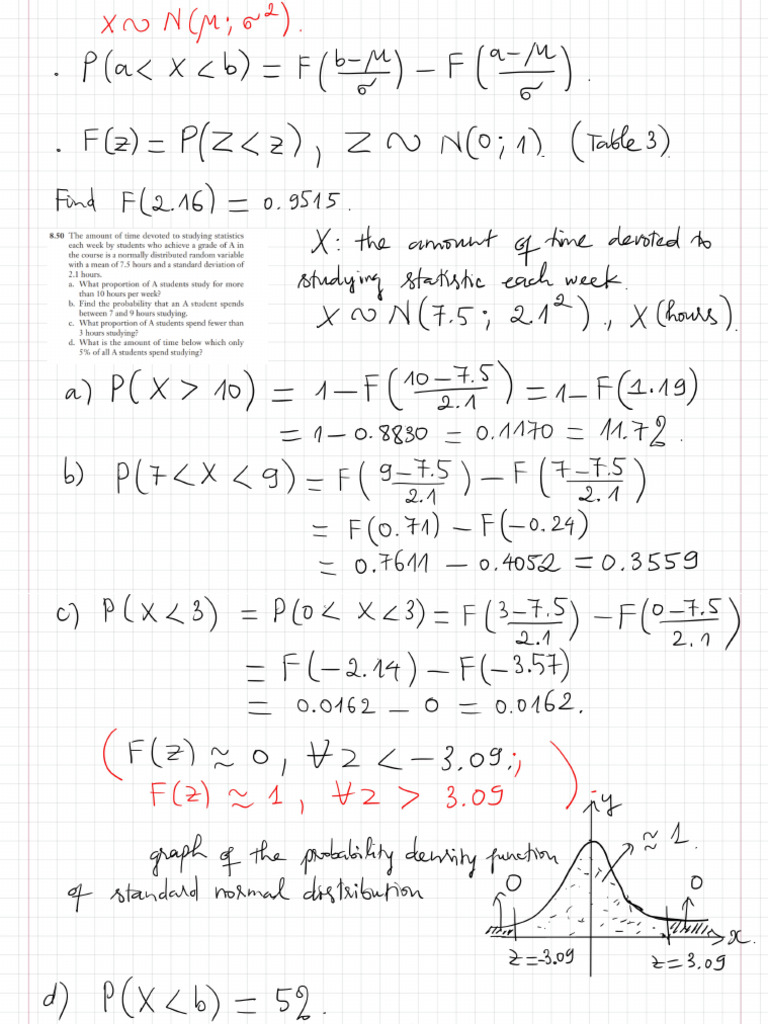 X ∼ N(μ; σ²).
. P(a < X < b) = F((b-μ)/σ) - F((a-μ)/σ).
. F(z) = P(Z < z), Z ∼ N(0; 1). (Table 3).
Find F(2.16) = 0.9515.
8.50 The amount of time devoted to studying statistics
each week by students who achieve a grade of A in
the course is a normally distributed random variable
with a mean of 7.5 hours and a standard deviation of
2.1 hours.
a. What proportion of A students study for more
than 10 hours per week?
b. Find the probability that an A student spends
between 7 and 9 hours studying.
c. What proportion of A students spend fewer than
3 hours studying?
d. What is the amount of time below which only
5% of all A students spend studying?
X: the amount of time devoted to
studying statistic each week.
X ∼ N(7.5; 2.1²), X (hours).
a) P(X > 10) = 1 - F((10-7.5)/2.1) = 1 - F(1.19)
= 1 - 0.8830 = 0.1170 = 11.7%.
b) P(7 < X < 9) = F((9-7.5)/2.1) - F((7-7.5)/2.1)
= F(0.71) - F(-0.24)
= 0.7611 - 0.4052 = 0.3559
c) P(X < 3) = P(0 < X < 3) = F((3-7.5)/2.1) - F((0-7.5)/2.1)
= F(-2.14) - F(-3.57)
= 0.0162 - 0 = 0.0162.
(F(z) ≈ 0, ∀z < -3.09;
F(z) ≈ 1, ∀z > 3.09).
graph of the probability density function
of standard normal distribution
y
≈ 1.
0
0
x.
z = -3.09
z = 3.09
d) P(X < b) = 5%.